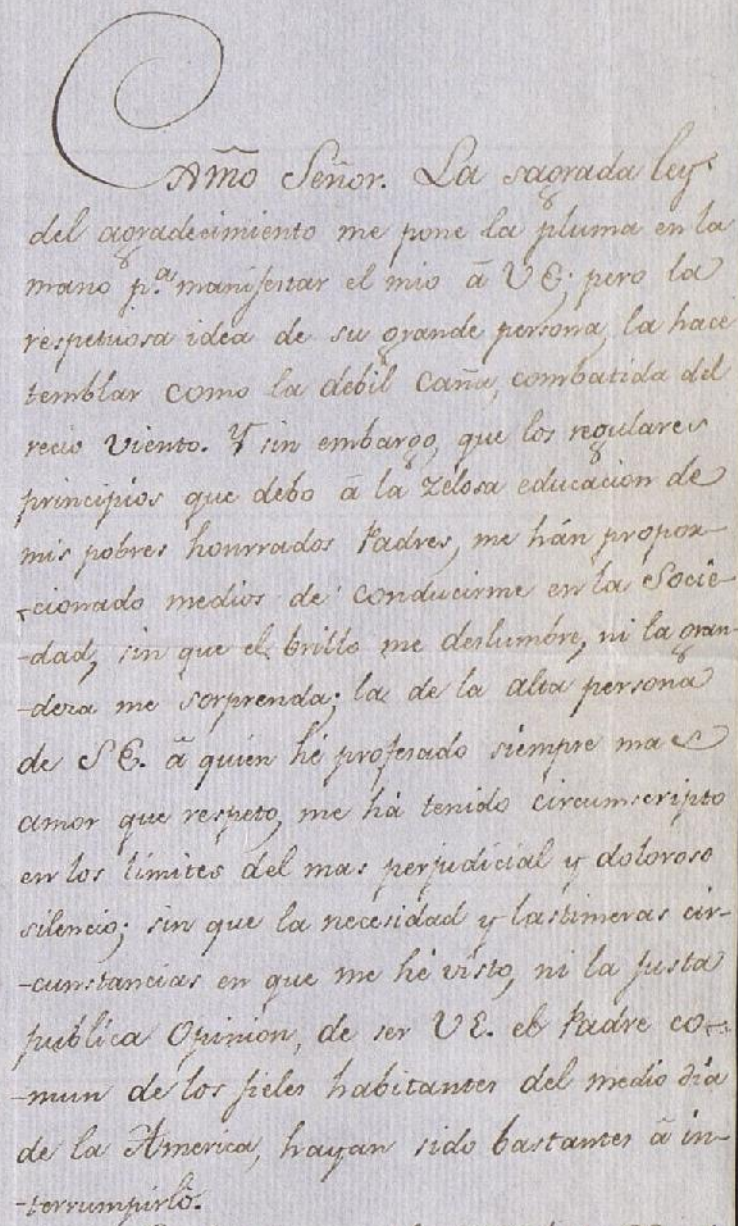 Exmõ Señor. La sagrada ley
del agradecimiento me pone la pluma en la
mano p.ª manifestar el mio ā VE; pero la
respetuosa idea de su grande persona, la hace
temblar como la debil caña, combatida del
recio viento. Y sin embargo, que los regulares
principios que debo ā la zelosa educacion de
mis pobres honrrados Padres, me hán propor-
-cionado medios de conducirme en la Socie-
-dad, sin que el brillo me deslumbre, ni la gran-
-deza me sorprenda; la de la alta persona
de SE. ā quien hé profesado siempre mas
amor que respeto, me há tenido circumscripto
en los limites del mas perjudicial y doloroso
silencio; sin que la necesidad y lastimeras cir-
-cunstancias en que me hé visto, ni la justa
publica Opinion, de ser VE. el Padre co-
-mun de los fieles habitantes del medio dia
de la America, hayan sido bastantes ā in-
-terrumpirlo.